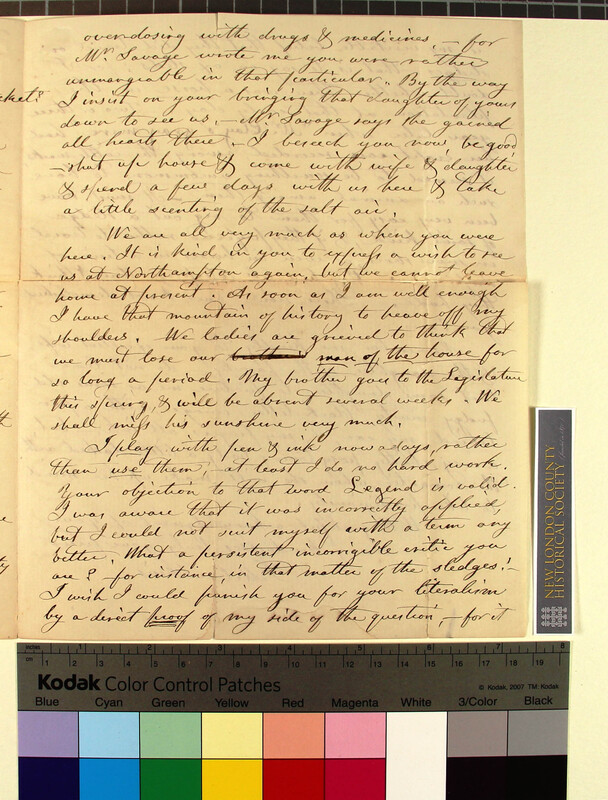 over-dosing with drugs & medicines, – for
Mr. Savage wrote me you were rather
unmanageable in that particular. By the way
I insist on your bringing that daughter of yours
down to see us. – Mr. Savage says she gained
all hearts there. – I beseech you now, be good
– shut up house & come with wife & daughter
& spend a few days with us here & take
a little scenting of the salt air.
We are all very much as when you were
here. It is kind in you to express a wish to see
us at Northampton again, but we cannot leave
home at present. As soon as I am well enough
I have that mountain of history to heave off my
shoulders. We ladies are grieved to think that
we must lose our brother's man of the house for
so long a period. My brother goes to the Legislature
this spring, & will be absent several weeks. We
shall miss his sunshine very much.
I play with pen & ink nowadays, rather
than use them, – at least I do no hard work.
Your objection to that word Legend is valid.
I was aware that it was incorrectly applied,
but I could not suit myself with a term any
better. What a persistent incorrigible critic you
are? – for instance, in that matter of the sledges! –
I wish I could punish you for your literalism
by a direct proof of my side of the question, – for it
NEW LONDON COUNTY
HISTORICAL SOCIETY
inches 1 2 3 4 5 6 7 8
cm 1 2 3 4 5 6 7 8 9 10 11 12 13 14 15 16 17 18 19
Kodak Color Control Patches
© Kodak, 2007 TM: Kodak
Blue Cyan Green Yellow Red Magenta White 3/Color Black